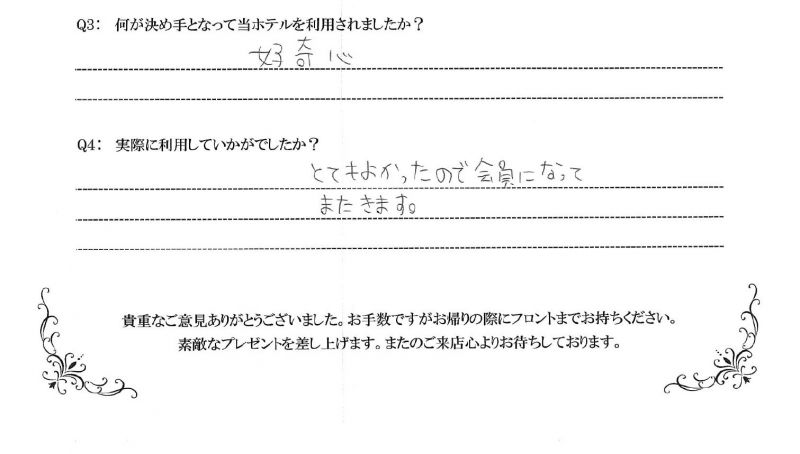 Q3： 何が決め手となって当ホテルを利用されましたか？
好奇心
Q4： 実際に利用していかがでしたか？
とてもよかったので会員になって
またきます。
貴重なご意見ありがとうございました。お手数ですがお帰りの際にフロントまでお持ちください。
素敵なプレゼントを差し上げます。またのご来店心よりお待ちしております。